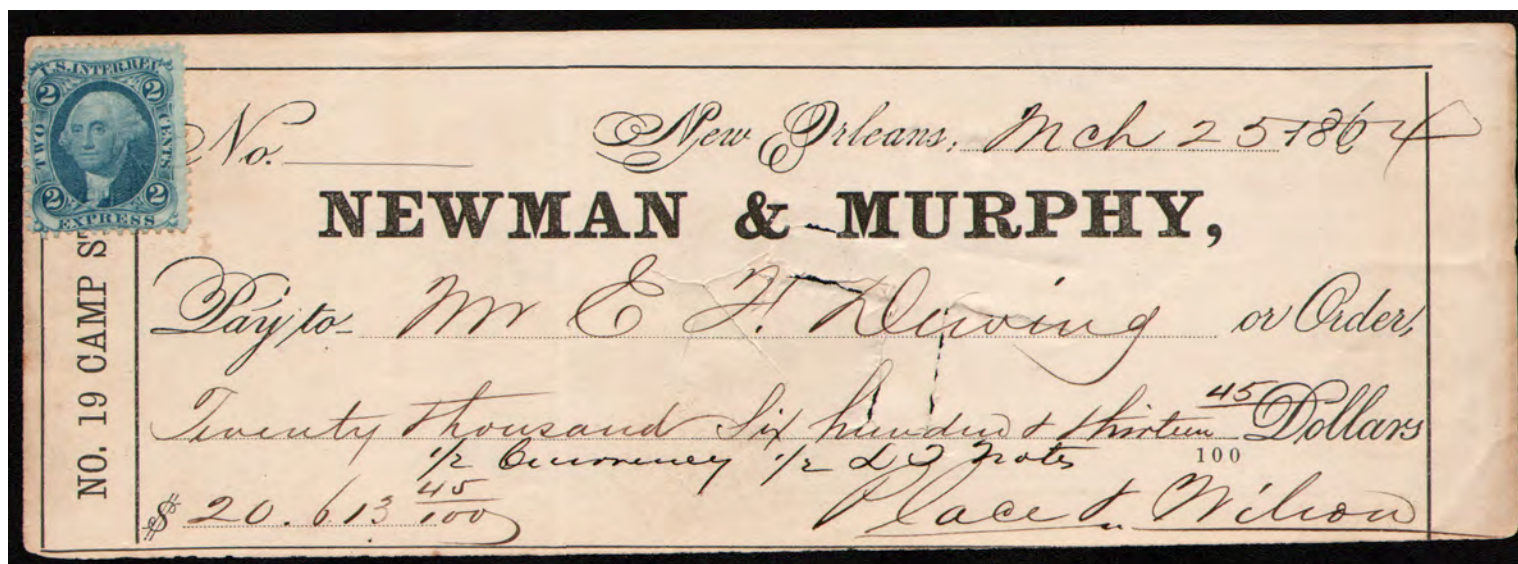 U.S. INTER. REV.
2 2
TWO CENTS
2 2
EXPRESS
No. New Orleans, Mch 25 1864
NEWMAN & MURPHY,
NO. 19 CAMP ST
Pay to Mr E. F. Dewing or Order,
Twenty thousand Six hundred & thirteen 45/100 Dollars
1/2 Currency 1/2 notes
$ 20.613 45/100 Place & Wilson